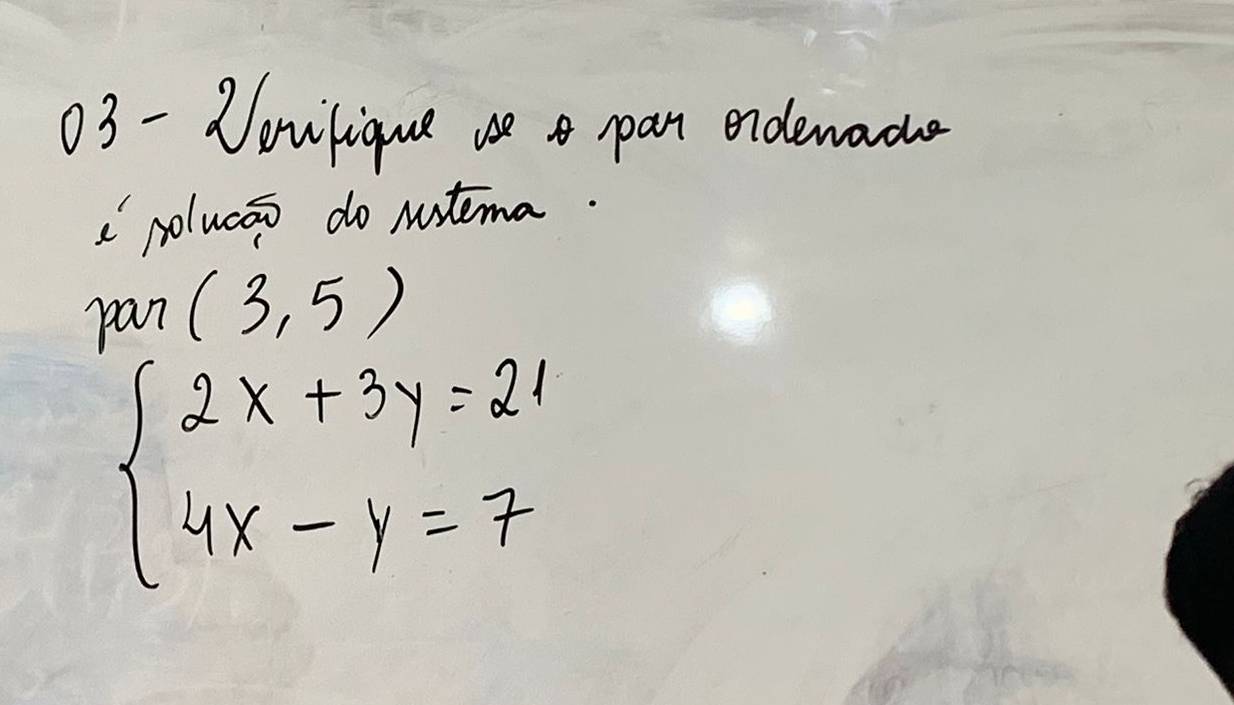 03 - Verifique se o par ordenado
é solução do sistema.
par (3, 5)
2x + 3y = 21
4x - y = 7